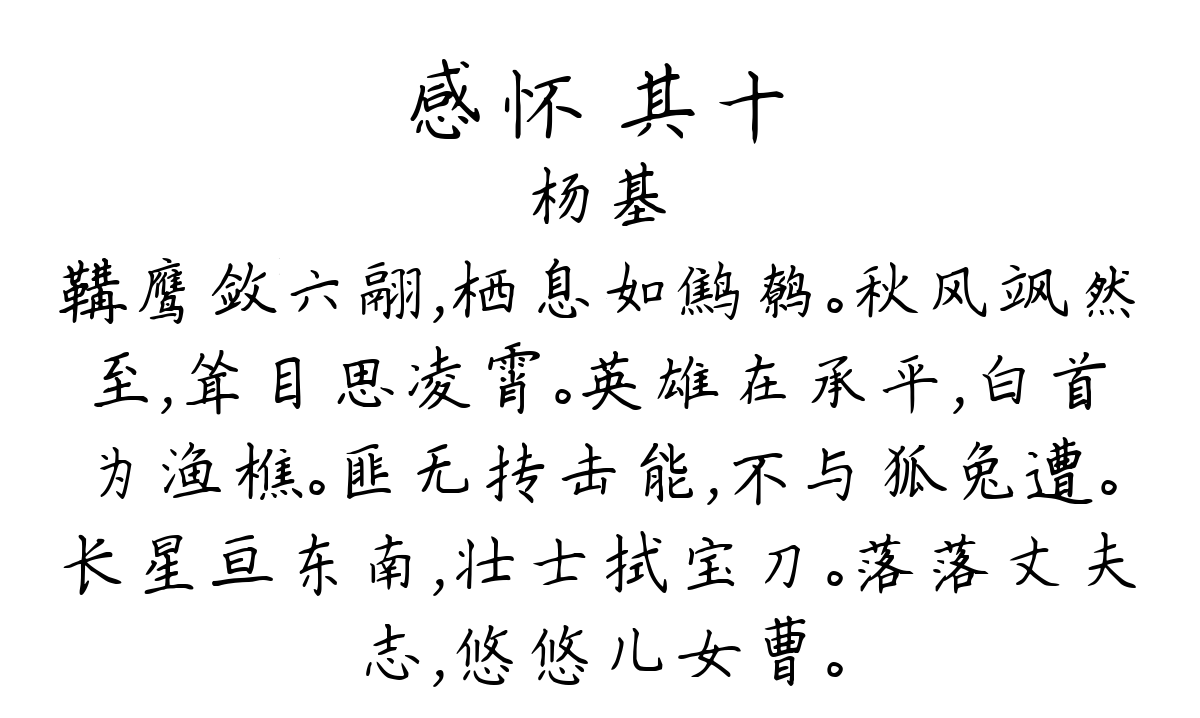 感怀 其十
杨基
鞲鹰敛六翮,栖息如鹪鹩。秋风飒然
至,耸目思凌霄。英雄在承平,白首
为渔樵。匪无抟击能,不与狐兔遭。
长星亘东南,壮士拭宝刀。落落丈夫
志,悠悠儿女曹。